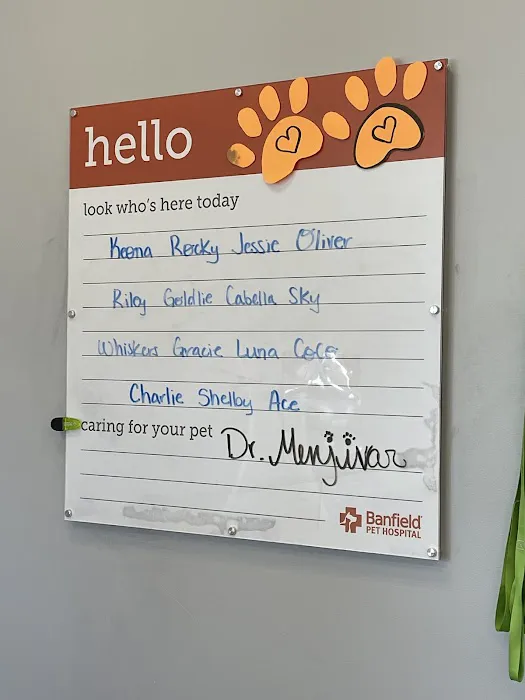 hello
look who's here today
Keena Rocky Jessie Oliver
Riley Goldie Cabella Sky
Whiskers Gracie Luna CoCo
Charlie Shelby Ace
caring for your pet Dr. Menjivar
Banfield
PET HOSPITAL